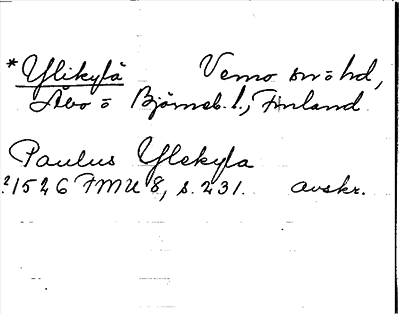 *Ylikylä Vemo sn o hd,
Åbo o Björneb. l., Finland
Paulus Ylekyla
?1526 FMU 8, s. 231. avskr.